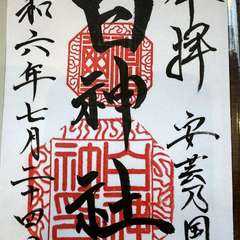 奉拝
安芸乃国
白神社
令和六年七月二十四日